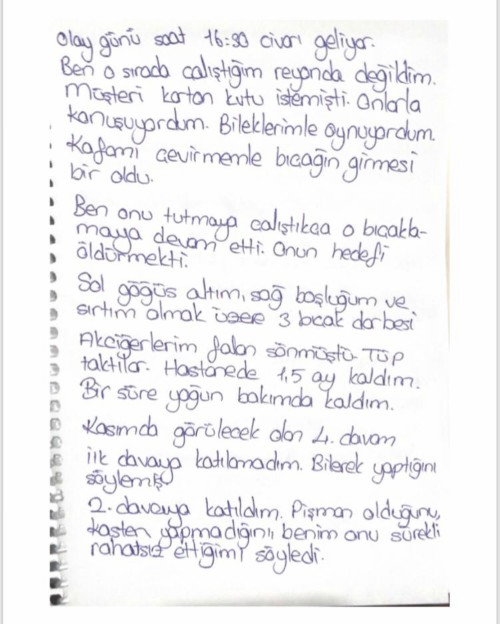 Olay günü saat 16:30 civarı geliyor.
Ben o sırada çalıştığım reyonda değildim.
Müşteri karton kutu istemişti. Onlarla
konuşuyordum. Bileklerimle oynuyordum.
Kafamı çevirmemle bıçağın girmesi
bir oldu.
Ben onu tutmaya çalıştıkca o bıcakla-
maya devam etti. Onun hedefi
öldürmekti.
Sol göğüs altım, sağ boşluğum ve
sırtım olmak üzere 3 bıcak darbesi
Akciğerlerim falan sönmüştü. Tüp
taktılar. Hastanede 1,5 ay kaldım.
Bir süre yoğun bakımda kaldım.
Kasımda görülecek olan 4. davam
ilk davaya katılamadım. Bilerek yaptığını
söylemiş
2. davaya katıldım. Pişman olduğunu,
kasten yapmadığını, benim onu sürekli
rahatsız ettiğimi söyledi.